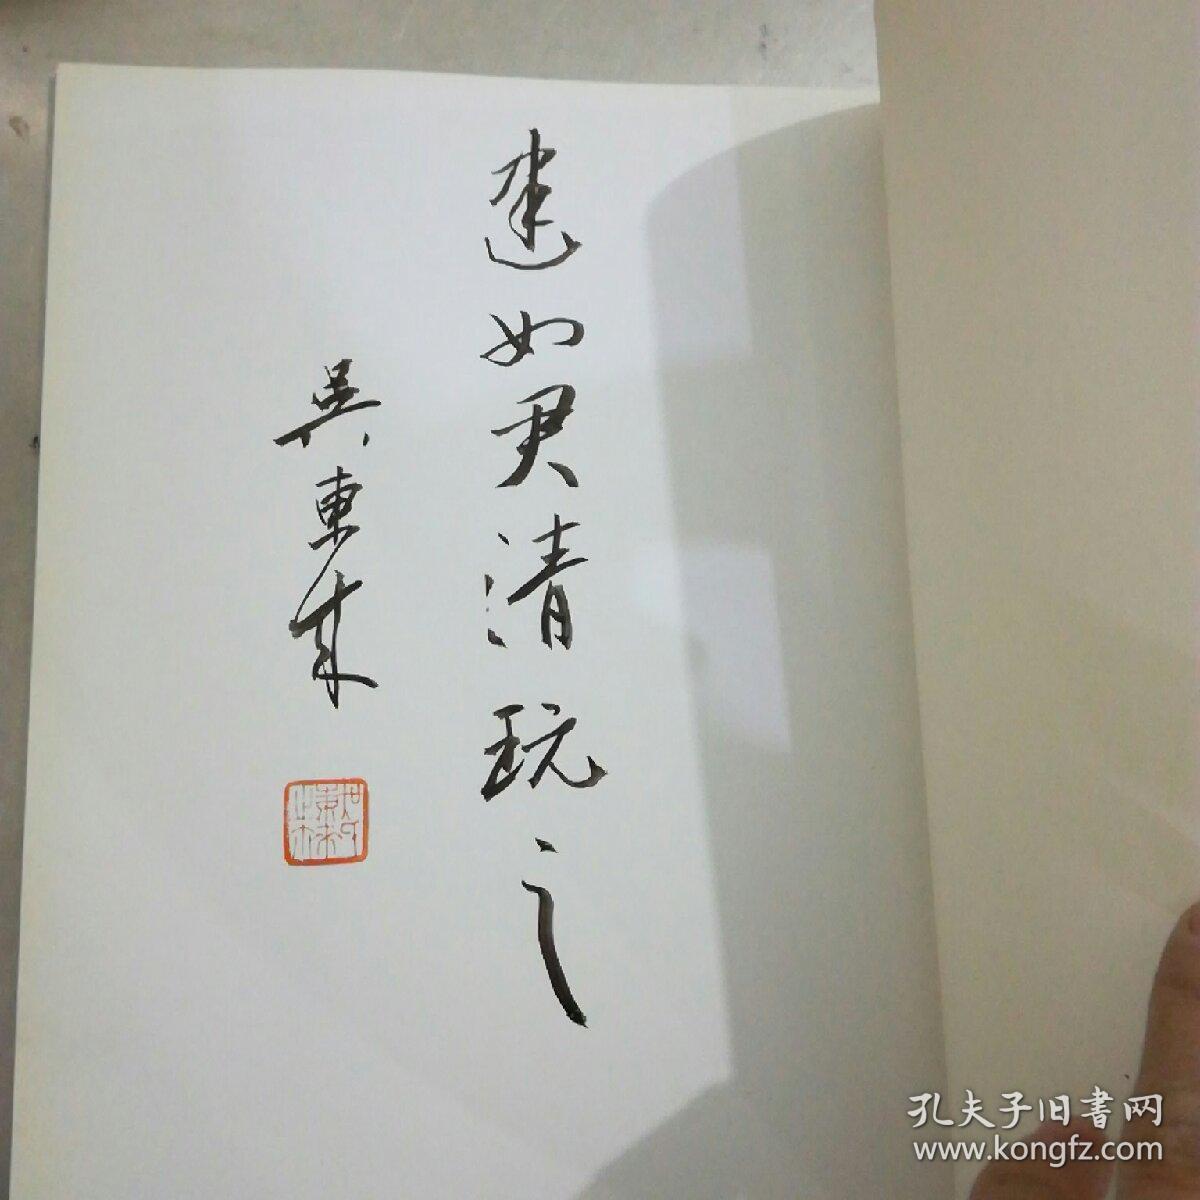 建如君清玩之
吴東来
孔夫子旧書网
www.kongfz.com